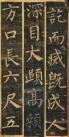 記而藏既成人
深目大顙高顴
方口長六尺五